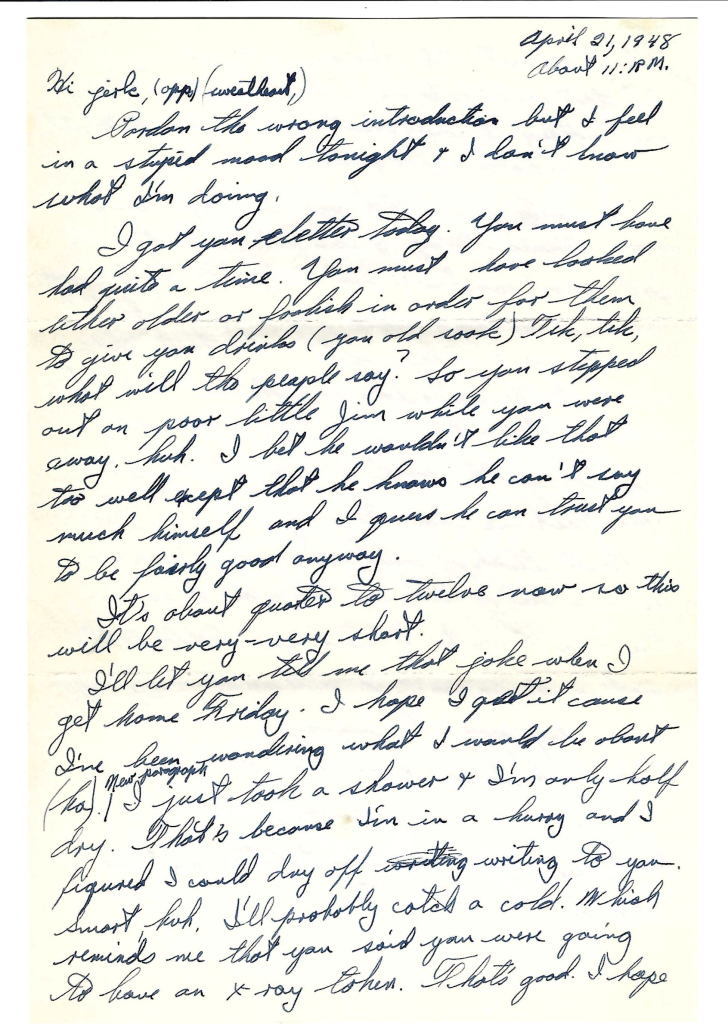 April 21, 1948
About 11:18 P.M.
Hi jerk, (opp) (sweetheart,)
Pardon the wrong introduction but I feel
in a stupid mood tonight & I don't know
what I'm doing.
I got you letter today. You must have
had quite a time. You must have looked
either older or foolish in order for them
to give you drinks (you old sook) Tik, tik,
what will the people say? So you stepped
out on poor little Jim while you were
away, huh. I bet he wouldn't like that
too well except that he knows he can't say
much himself and I guess he can trust you
to be fairly good anyway.
It's about quarter to twelve now so this
will be very-very short.
I'll let you tell me that joke when I
get home Friday. I hope I get it cause
I've been wondering what I would be about
(ha). New paragraph I just took a shower & I'm only half
dry. That's because I'm in a hurry and I
figured I could dry off writing to you.
Smart huh. I'll probably catch a cold. Which
reminds me that you said you were going
to have an x-ray token. That's good. I hope